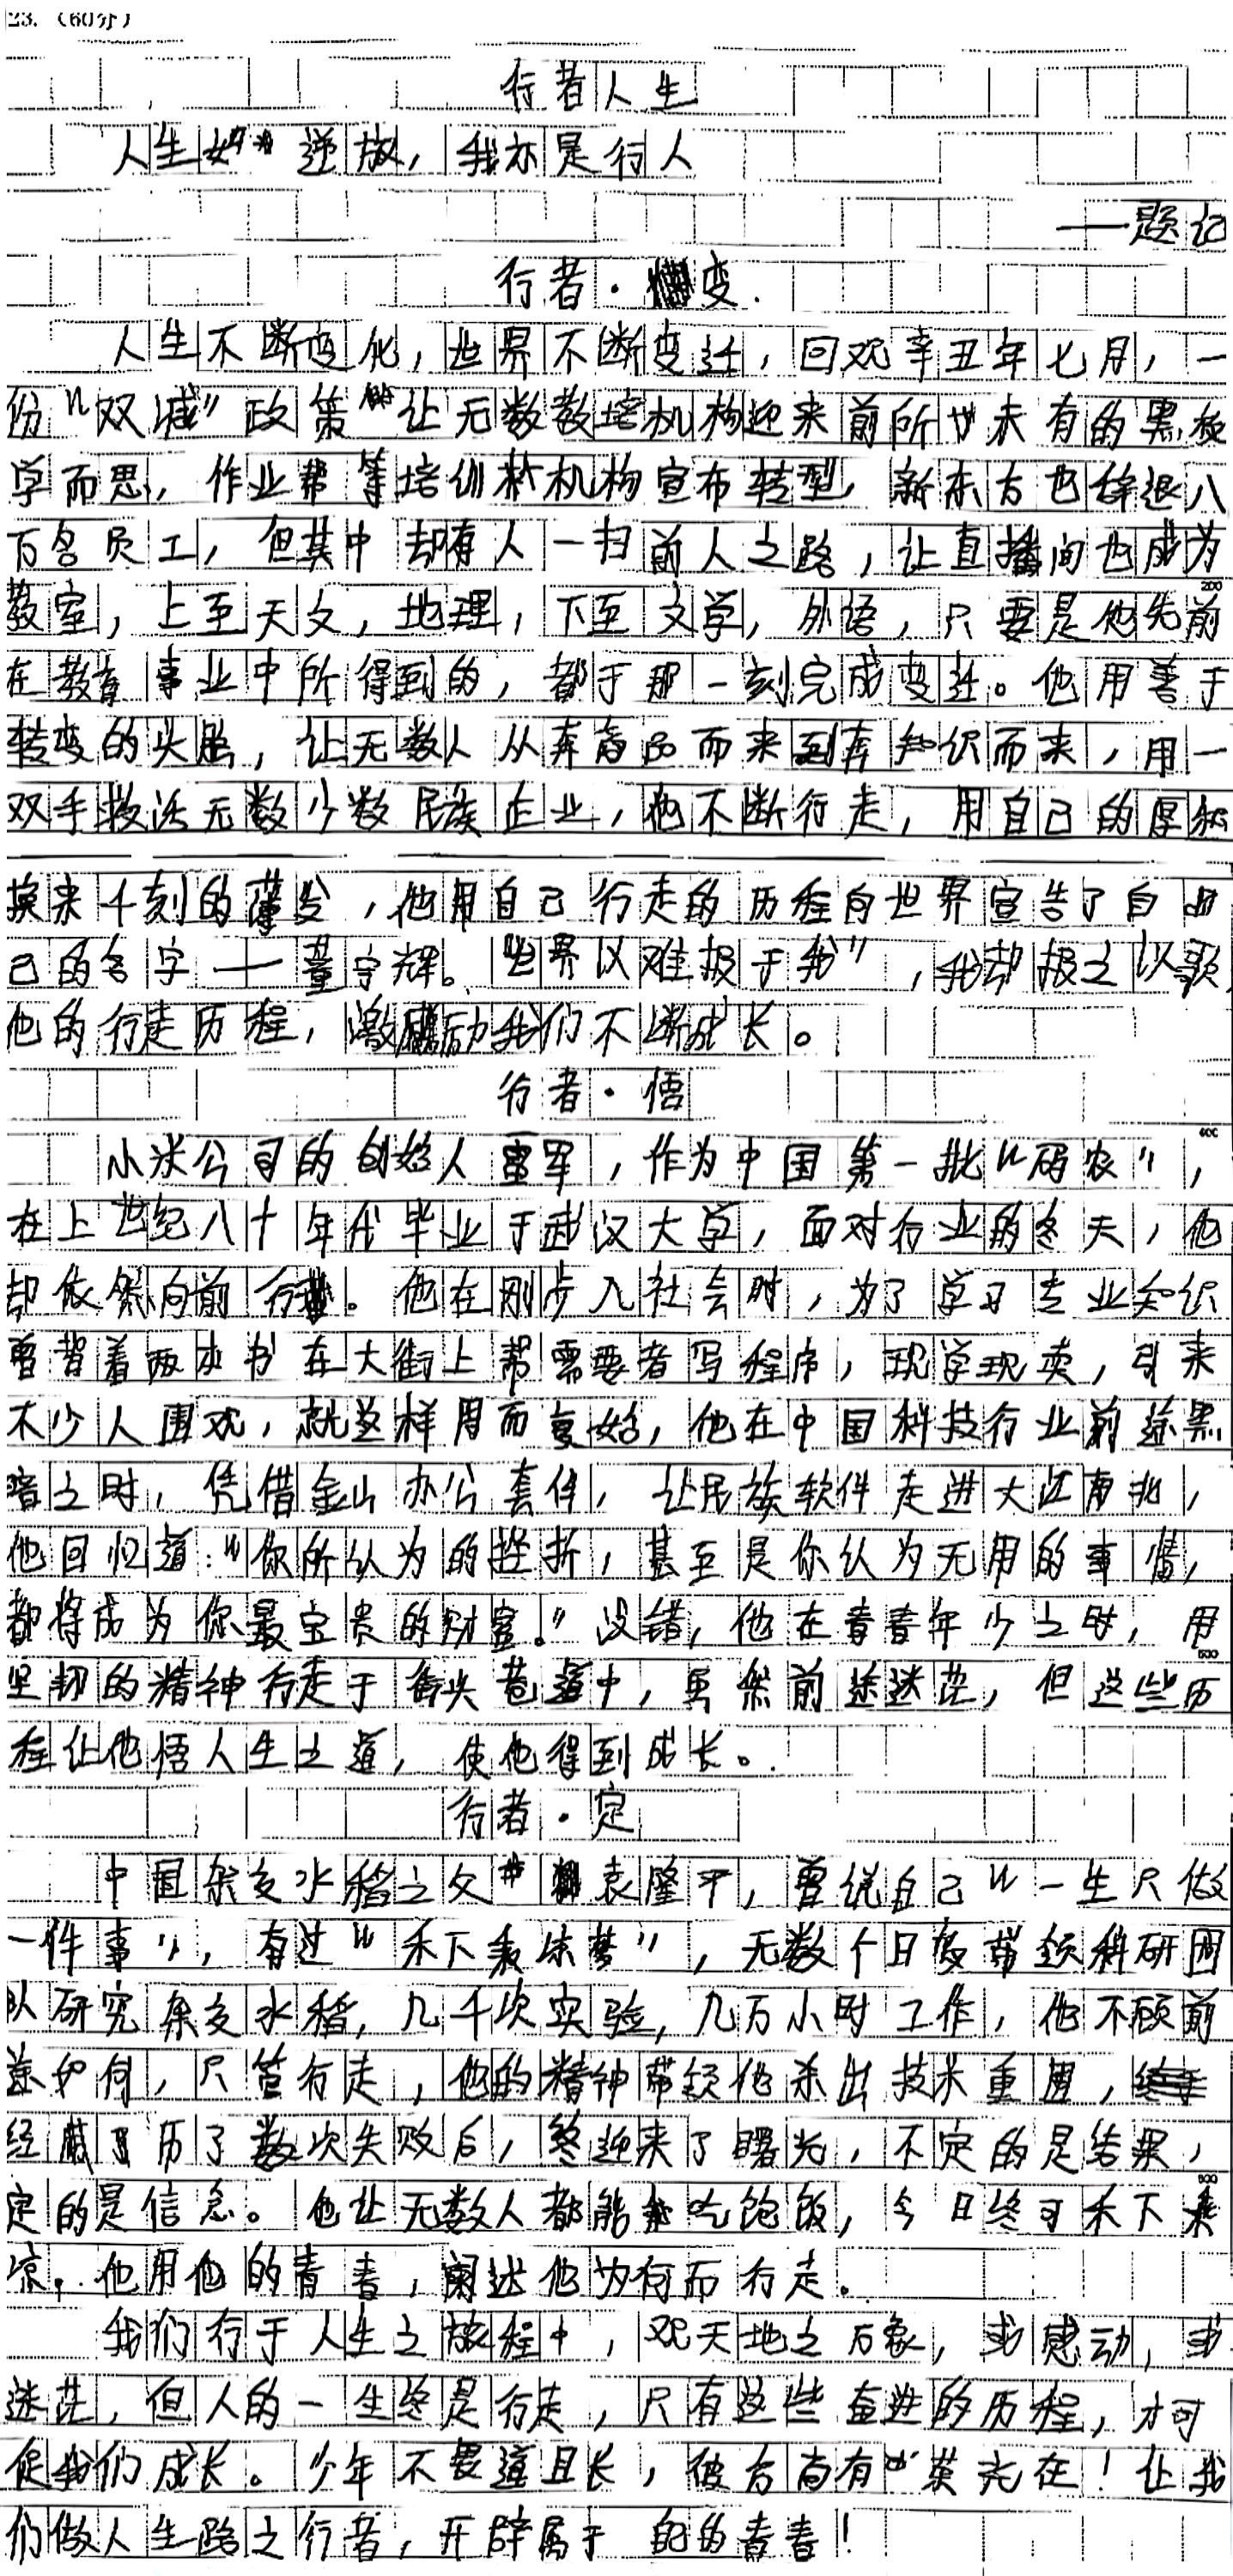 23.（60分）
行者人生
人生如逆旅，我亦是行人
——题记
行者·变
人生不断变化，世界不断变迁，回观辛丑年七月，一
份“双减”政策让无数教培机构迎来前所未有的黑夜
学而思，作业帮等培训机构宣布转型，新东方也辞退八
万名员工，但其中却有人一扫前人之路，让直播间也成为
200
教室，上至天文，地理，下至文学，外语，只要是他先前
在教育事业中所得到的，都于那一刻完成变迁。他用善于
转变的头脑，让无数人从奔商品而来到奔知识而来，用一
双手救活无数少数民族企业，他不断行走，用自己的厚积
换来千刻的薄发，他用自己行走的历程向世界宣告了自
己的名字——董宇辉。“世界以难报于我”，我却报之以歌，
他的行走历程，激励我们不断成长。
行者·悟
400
小米公司的创始人雷军，作为中国第一批“码农”，
在上世纪八十年代毕业于武汉大学，面对行业的冬天，他
却依然向前行。他在刚步入社会时，为了学习专业知识
曾背着两本书在大街上帮需要者写程序，现学现卖，引来
不少人围观，就这样周而复始，他在中国科技行业前途黑
暗之时，凭借金山办公套件，让民族软件走进大江南北，
他回忆道：“你所认为的挫折，甚至是你认为无用的事情，
都将成为你最宝贵的财富。”没错，他在青春年少之时，用
600
坚韧的精神行走于街头巷道中，虽然前途迷茫，但这些历
程让他悟人生之道，使他得到成长。
行者·定
中国杂交水稻之父袁隆平，曾说自己“一生只做
一件事”，有过“禾下乘凉梦”，无数个日夜带领科研团
队研究杂交水稻，几千次实验，几万小时工作，他不顾前
途如何，只管行走，他的精神带领他杀出技术重围，
经历了数次失败后，终迎来了曙光，不定的是结果，
800
定的是信念。他让无数人都能吃饱饭，今日终可禾下乘
凉，他用他的青春，阐述他为何而行走。
我们行于人生之旅程中，观天地之万象，或感动，或
迷茫，但人的一生终是行走，只有这些奋进的历程，才可
促我们成长。少年不畏道且长，彼方尚有荣光在！让我
们做人生路之行者，开辟属于自己的青春！